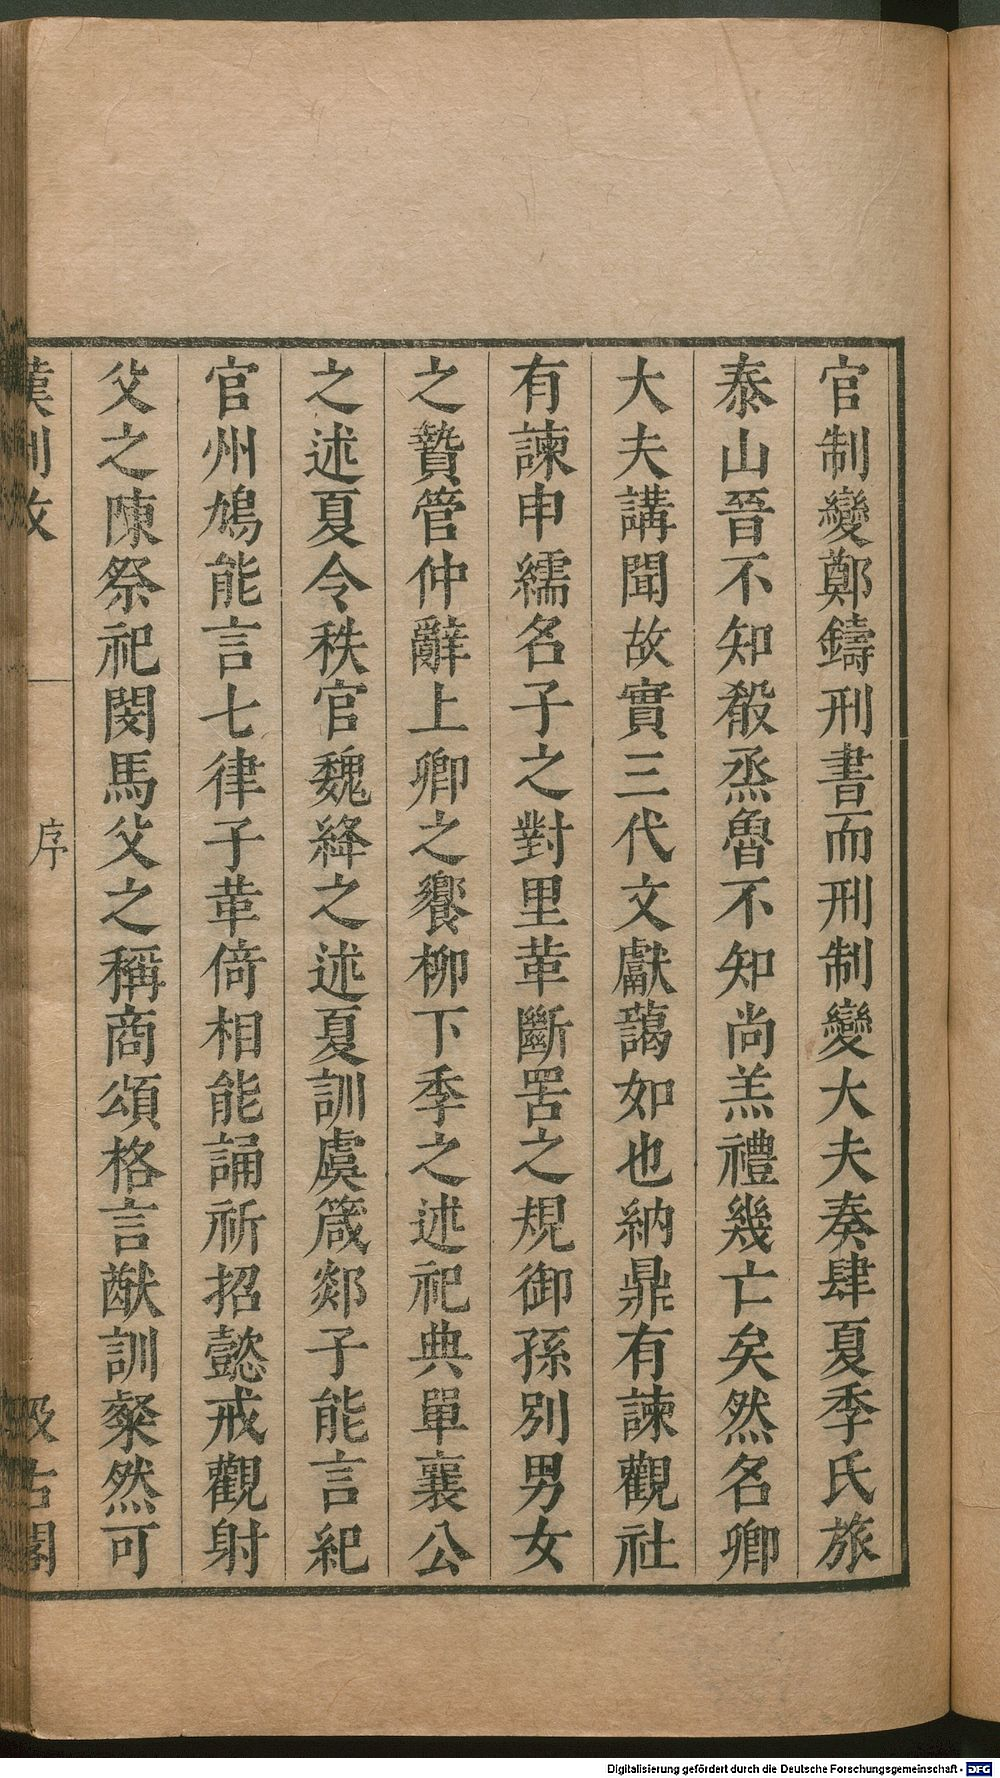 官制變鄭鑄刑書而刑制變大夫奏肆夏季氏旅
泰山晉不知殽烝魯不知尚羔禮幾亡矣然名卿
大夫講聞故實三代文獻藹如也納鼎有諫觀社
有諫申繻名子之對里革斷罟之規御孫別男女
之贄管仲辭上卿之饗柳下季之述祀典單襄公
之述夏令秩官魏絳之述夏訓虞箴郯子能言紀
官州鳩能言七律子革倚相能誦祈招懿戒觀射
父之陳祭祀閔馬父之稱商頌格言猷訓粲然可
漢制攷
序
汲古閣
Digitalisierung gefördert durch die Deutsche Forschungsgemeinschaft - DFG